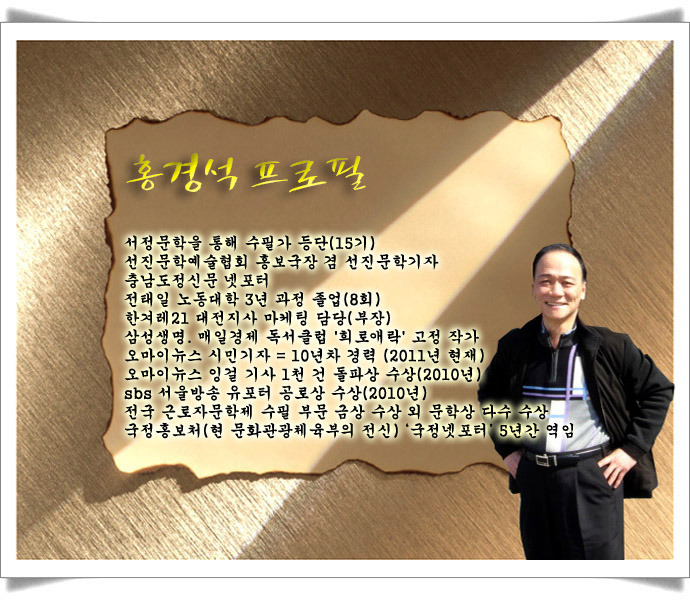 홍경석 프로필
서정문학을 통해 수필가 등단(15기)
선진문학예술협회 홍보국장 겸 선진문학기자
충남도정신문 넷포터
전태일 노동대학 3년 과정 졸업(8회)
한겨레21 대전지사 마케팅 담당(부장)
삼성생명. 매일경제 독서클럽 '희로애락' 고정 작가
오마이뉴스 시민기자 = 10년차 경력 (2011년 현재)
오마이뉴스 잉걸 기사 1천 건 돌파상 수상(2010년)
sbs 서울방송 유포터 공로상 수상(2010년)
전국 근로자문학제 수필 부문 금상 수상 외 문학상 다수 수상
국정홍보처(현 문화관광체육부의 전신) '국정넷포터' 5년간 역임